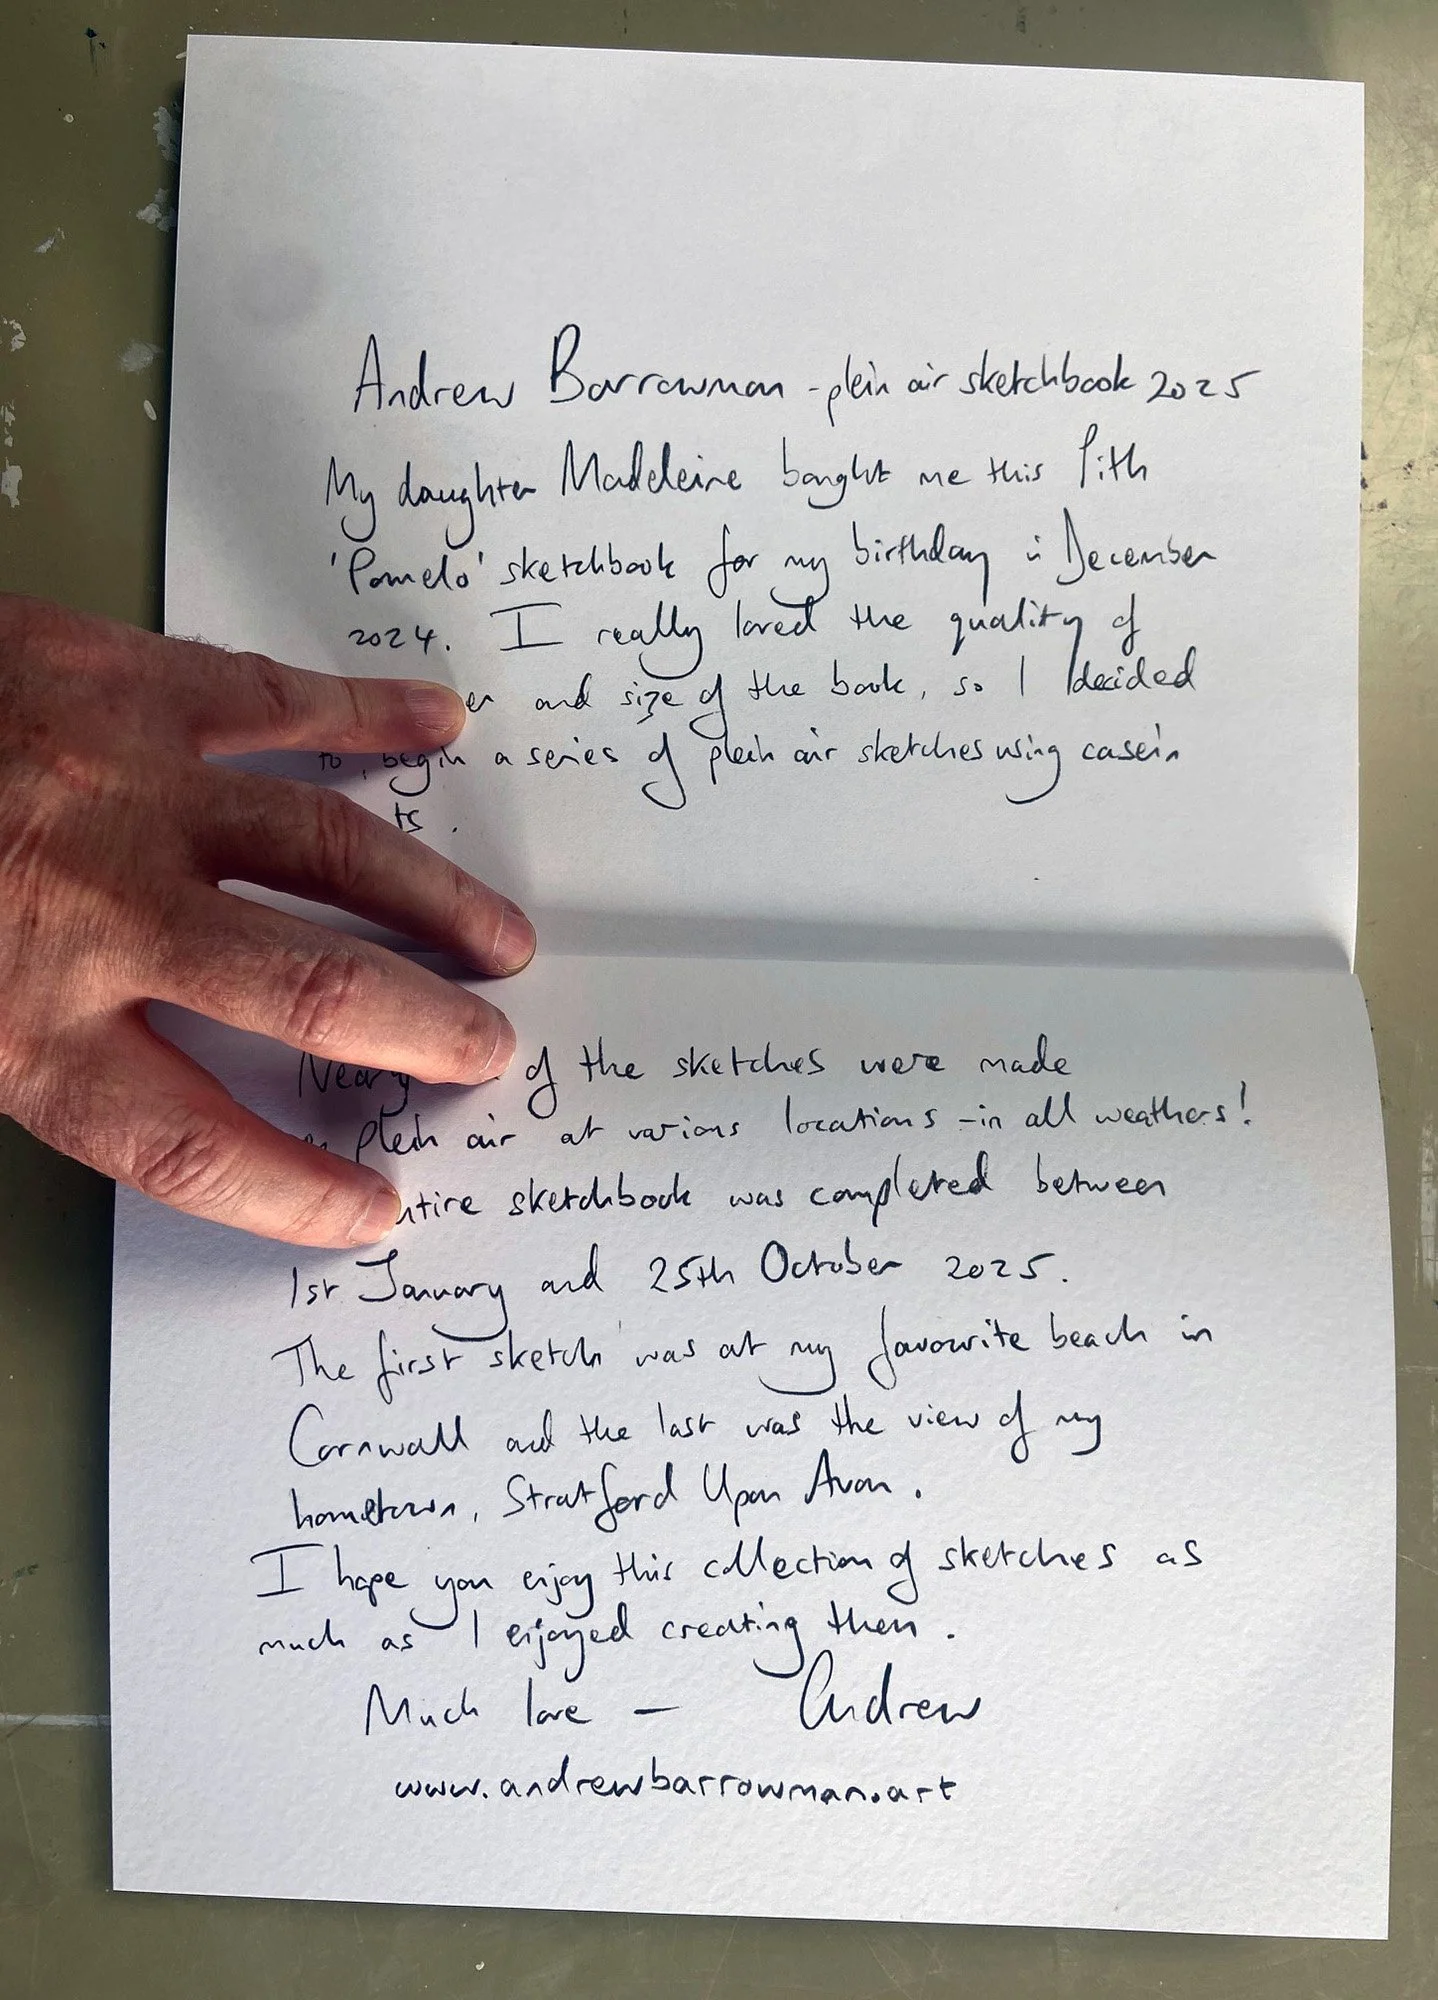 Andrew Barrowman - plein air sketchbook 2025
My daughter Madeleine bought me this Pith
'Pomelo' sketchbook for my birthday in December
2024. I really loved the quality of
er and size of the book, so I decided
to begin a series of plein air sketches using casein
ts.
Nearly of the sketches were made
plein air at various locations - in all weathers!
ntire sketchbook was completed between
1st January and 25th October 2025.
The first sketch was at my favourite beach in
Cornwall and the last was the view of my
hometown, Stratford Upon Avon.
I hope you enjoy this collection of sketches as
much as I enjoyed creating them.
Much love - Andrew
www.andrewbarrowman.art